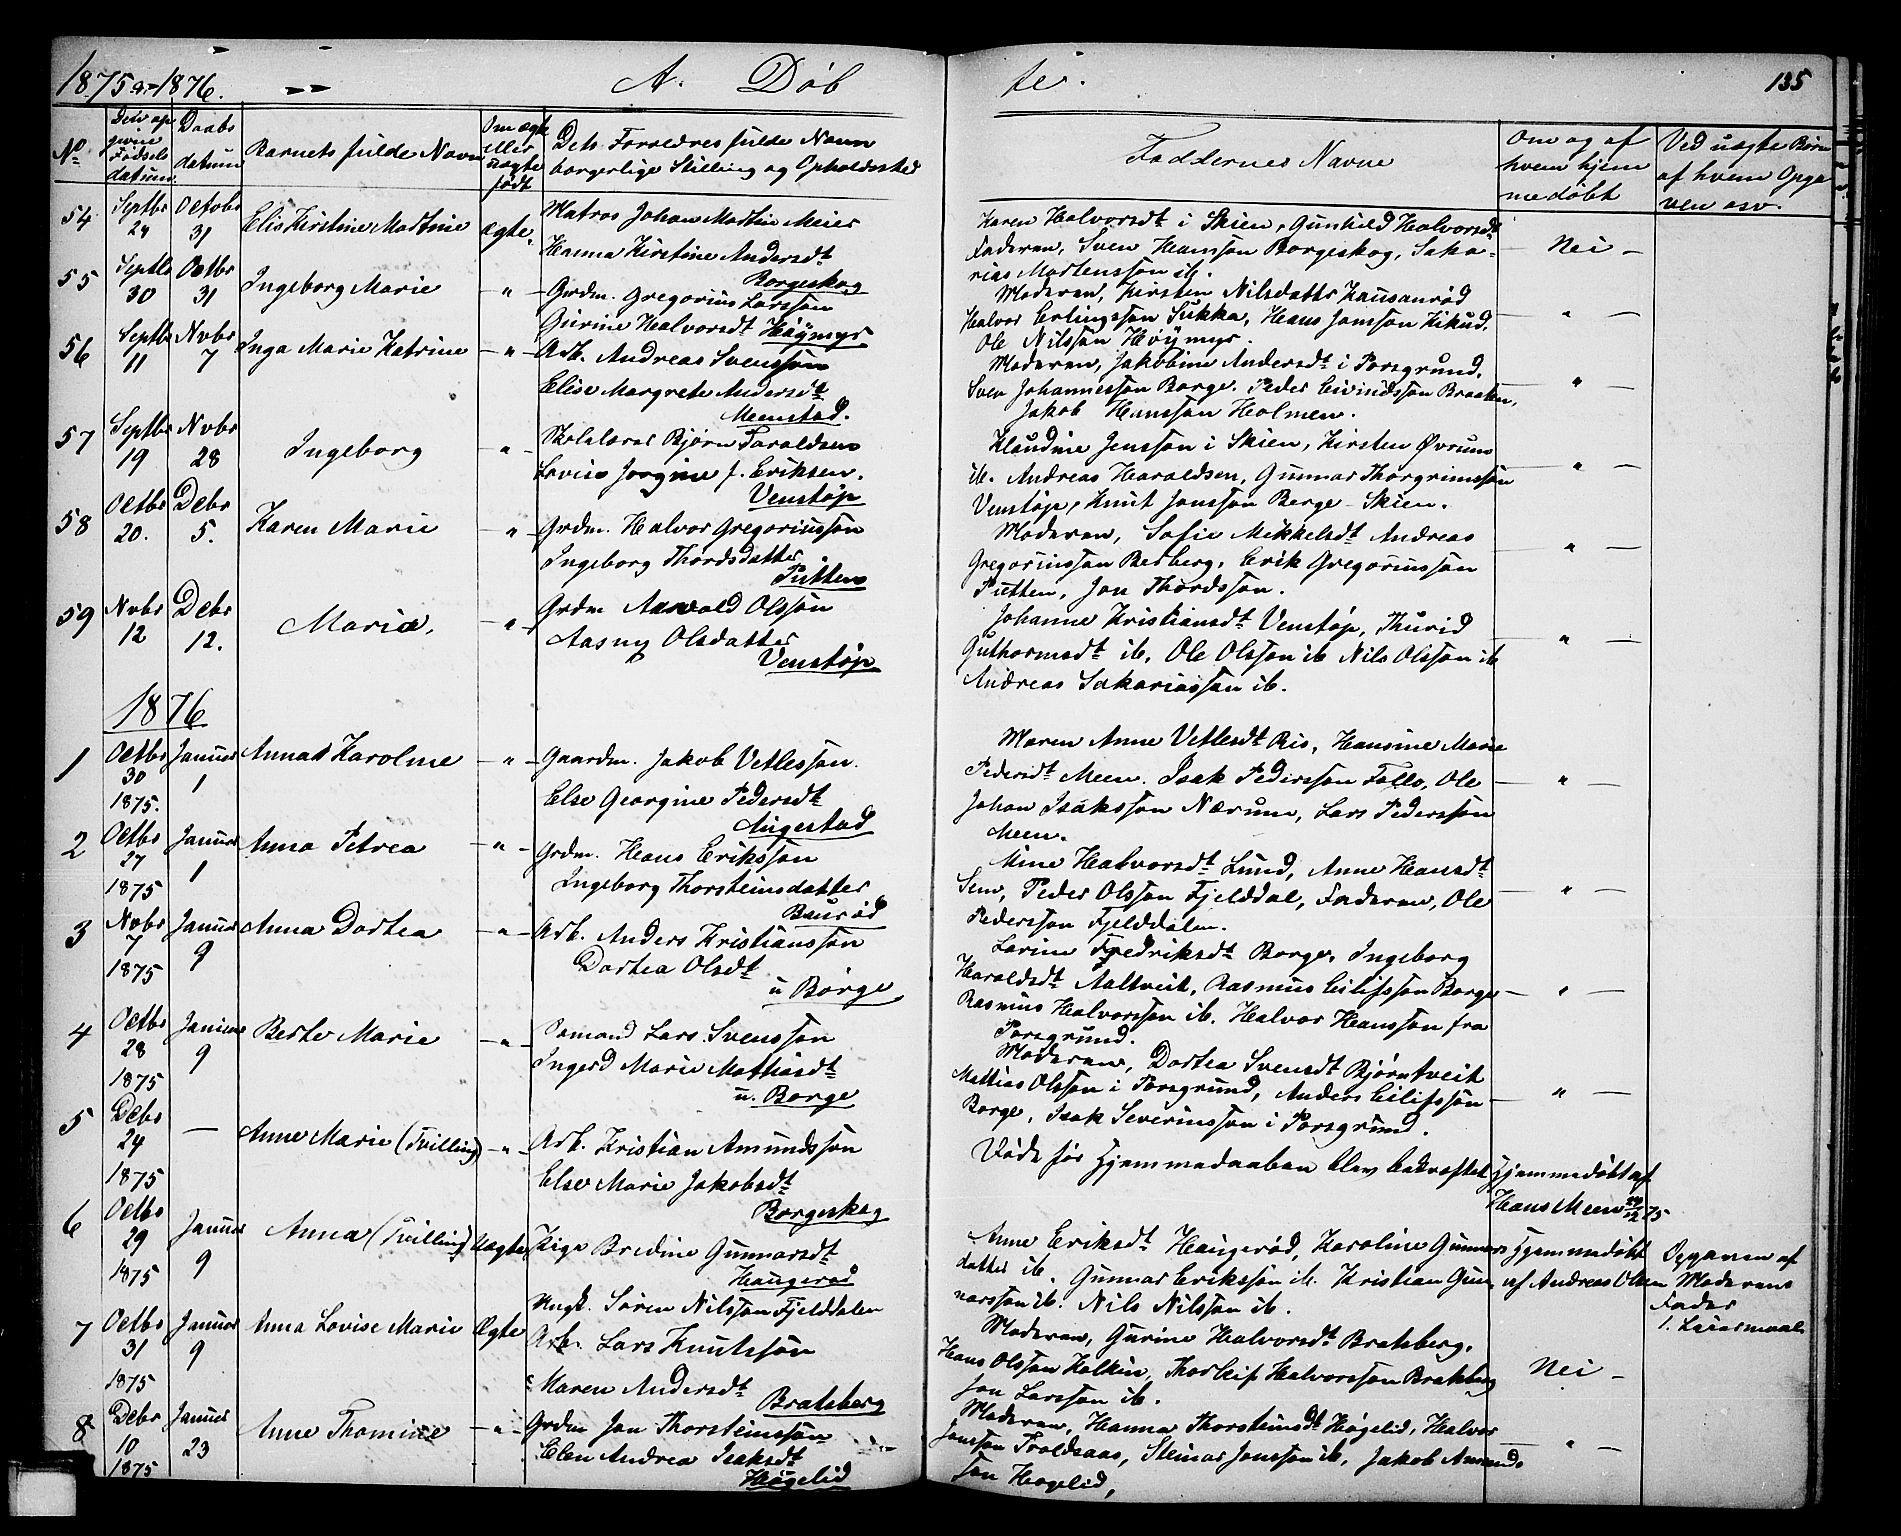 1875 og 1876. A. Døb te. 135
No
Den op
givne
Fødsels
datum.
Daabs
datum
Barnets fulde Navn
Om ægte
eller
uægte
født
Dets Forældres fulde Navn
borgerlige Stilling og Opholdssted
Faddernes Navne
Om og af
hvem hjem
medøbt
Ved uægte Børn
af hvem Opga
ven osv.
54 Septbr 24 Octobr 31 Elis Kirstine Martine Ægte.
Matros Johan Martin Meier
Hanna Kirstine Andersdt
Borgeskog
Karen Halvorsdt i Skien, Gunhild Halvorsdt
Faderen, Sven Hansson Borgeskog, Saka-
rias Mortensson ib.
Nei
55 Septbr 30 Octbr 31 Ingeborg Marie "
Grdm. Gregorius Larsson
Gurine Halvorsdt Höymyr
Moderen, Kirsten Nilsdatter
Halvor Erlingsson Sukka, Hans Jonsson Kikud,
Ole Nilsson Höymyr.
"
56 Septbr 11 Nvbr 7 Inga Marie Katrine "
Arb. Andreas Svensson
Elise Margrete Andersdt
Meenstad.
Moderen, Jakobine Andersdt i Porsgrund.
Sven Johannesson Borge. Peder Eivindsson Braaten,
Jakob Hansson Holmen.
"
57 Septbr 19 Nvbr 28 Ingeborg "
Skolelærer Bjørn Taraldsen
Lovise Jorgine f. Eriksen.
Venstøp
Klaudine Jensson i Skien, Kirsten Øvrum
ib. Andreas Haraldsen, Gunnar Thorgrimsson
Venstøp, Knut Jonsson Berge - Skien.
"
58 Octbr 20. Debr 5. Karen Marie "
Grdm. Halvor Gregoriusson
Ingeborg Thordsdatter
Putten
Moderen, Sofie Mikkelsdt Andreas
Gregoriusson Berberg, Erik Gregoriusson
Putten, Jon Thordsson.
"
59 Nvbr 12 Debr 12. Maria. "
Grdm Aanvald Olsson
Aasny Olsdatter
Venstøp
Johanne Kristiansdt Venstøp, Thurid
Guthormsdt ib, Ole Olsson ib Nils Olsson ib
Andreas Sakariasson ib.
"
1876
1 Octbr 30 1875. Januar 1 Anna Karoline "
Gaardm. Jakob Vetlesson.
Else Georgine Pedersdt
Augestad
Maren Anne Vetlesdt Ris, Hansine Marie
Pedersdt Meen. Isak Pedersson Follo, Ole
Johan Isaksson Nærum, Lars Pedersson
Meen.
"
2 Octbr 27 1875 Januar 1 Anna Petrea "
Grdm. Hans Eriksson
Ingeborg Thorsteinsdatter
Baurød
Mine Halvorsdt Lund, Anne Hansdt
Sem, Peder Olsson Fjelddal, Faderen, Ole
Pedersson Fjelddalen.
"
3 Nvbr 7 1875 Januar 9 Anna Dortea "
Arb. Anders Kristiansson
Dortea Olsdt
u Borge
Larine Fredriksdt Borge, Ingeborg
Haraldsdt Aaltveit, Rasmus Eilifsson Borge
Rasmus Halvorsson ib. Halvor Hansson fra
Porsgrund.
"
4 Octbr 28 1875 Januar 9 Berte Marie "
Sømand Lars Svensson
Ingerd Marie Mathiasdt
u. Borge
Moderen, Dortea Svensdt Bjørntveit
Mathias Olsson i Porsgrund, Anders Eilifsson
Borge, Isak Severinsson i Porsgrund.
"
5 Debr 24 1875 — Anne Marie (Tvilling) "
Arb. Kristian Amundsson
Else Marie Jakobsdt
Borgeskog
Døde før Hjemmedaaben blev bekræftet
Hjemmedøbt af
Hans Meen 24/12 75
6 Octbr 29 1875 Januar 9 Anna (Tvilling) Uægte
Pige Bredine Gunnarsdt
Haugerød
Ungk. Søren Nilsson Fjelddalen
Anne Eriksdt Haugerød, Karoline Gunnars
datter ib. Gunnar Eriksson ib. Kristian Gun
narsson ib. Nils Nilsson ib.
Hjemmedøbt
af Andreas Olsen
Opgaven af
Moderens
Fader
1. Leiermaal
7 Octbr 31 1875 Januar 9 Anna Lovise Marie Ægte
Arb. Lars Knutsson
Maren Andersdt
Bratsberg
Moderen, Gurine Halvorsdt Bratsberg.
Hans Olsson Kolkin, Thorleif Halvorsson Bratsberg
Jon Larsson ib.
Nei
8 Debr 10 1875 Januar 23 Anne Thomine "
Grdm Jon Thorsteinsson
Elen Andrea Isaksdt
Høgelid
Moderen, Hanna Thorsteinsdt Høgelid, Halvor
Jonsson Troldsaas, Steinar Jonsson ib, Jakob Amund-
son Høgelid,
"